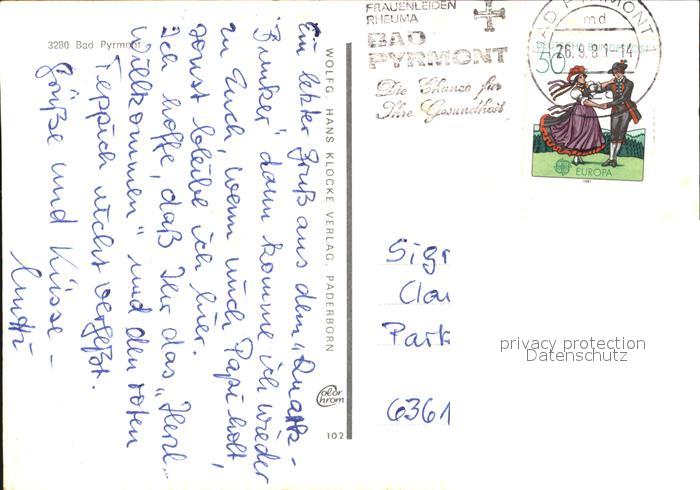 3280 Bad Pyrmont
Ein letzter Gruß aus dem „Quatk-
Bunker", dann komme ich wieder
zu Euch, wenn mich Papi holt,
sonst bleibe ich hier.
Ich hoffe, daß Ihr das „Herzl.
Willkommen" und den roten
Teppich nicht vergeßt.
Grüße und Küsse –
Mutti
WOLFG. HANS KLOCKE VERLAG, PADERBORN
color
chrom
102
FRAUENLEIDEN
RHEUMA
BAD
PYRMONT
Die Chance für
Ihre Gesundheit
BAD PYRMONT
md
26.9.81-14
DEUTSCHE BUNDESPOST
50
EUROPA
1981
Sigr
Clau
Park
6361
privacy protection
Datenschutz